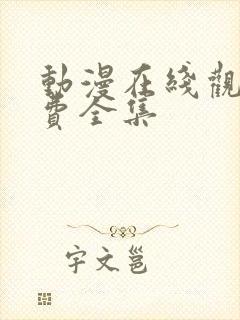 動漫在綫觀
費全集
宇文邕